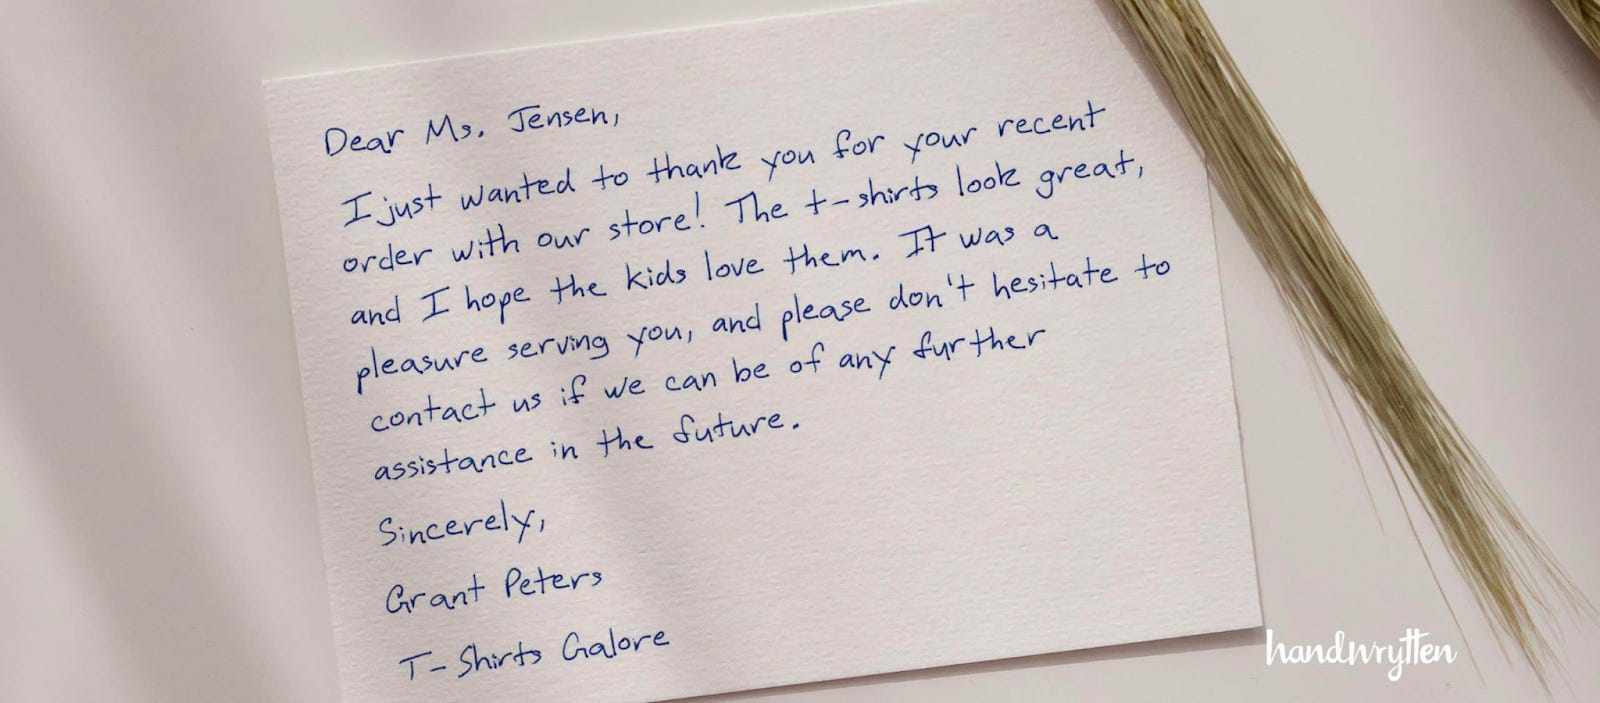 Dear Ms. Jensen,
I just wanted to thank you for your recent
order with our store! The t-shirts look great,
and I hope the kids love them. It was a
pleasure serving you, and please don't hesitate to
contact us if we can be of any further
assistance in the future.
Sincerely,
Grant Peters
T-Shirts Galore
handwrytten